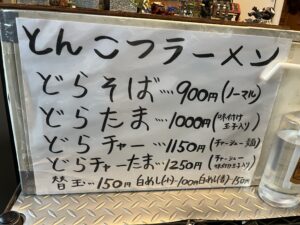 とんこつラーメン
どらそば…900円(ノーマル)
どらたま…1000円(味付け玉子入り)
どらチャー…1150円(チャーシュー
どらチャーたま…1250円(チャーシュー味付玉子入り)
替玉…150円 白めし(小)…100円 白めし(普)…150円